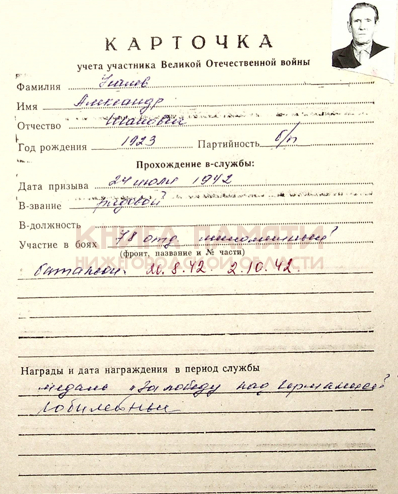 КАРТОЧКА
учета участника Великой Отечественной войны
Фамилия
Имя Александр
Отчество Иванович
Год рождения 1923 Партийность б/п
Прохождение в-службы:
Дата призыва 24 июля 1942
В-звание рядовой
В-должность
Участие в боях 78 отд.
(фронт, название и № части)
батальон 20.8.42. 2.10.42
КНИГА ПАМЯТИ
НИЖЕГОРОДСКОЙ ОБЛАСТИ
Награды и дата награждения в период службы
медаль "За победу над Германией"
Юбилейные